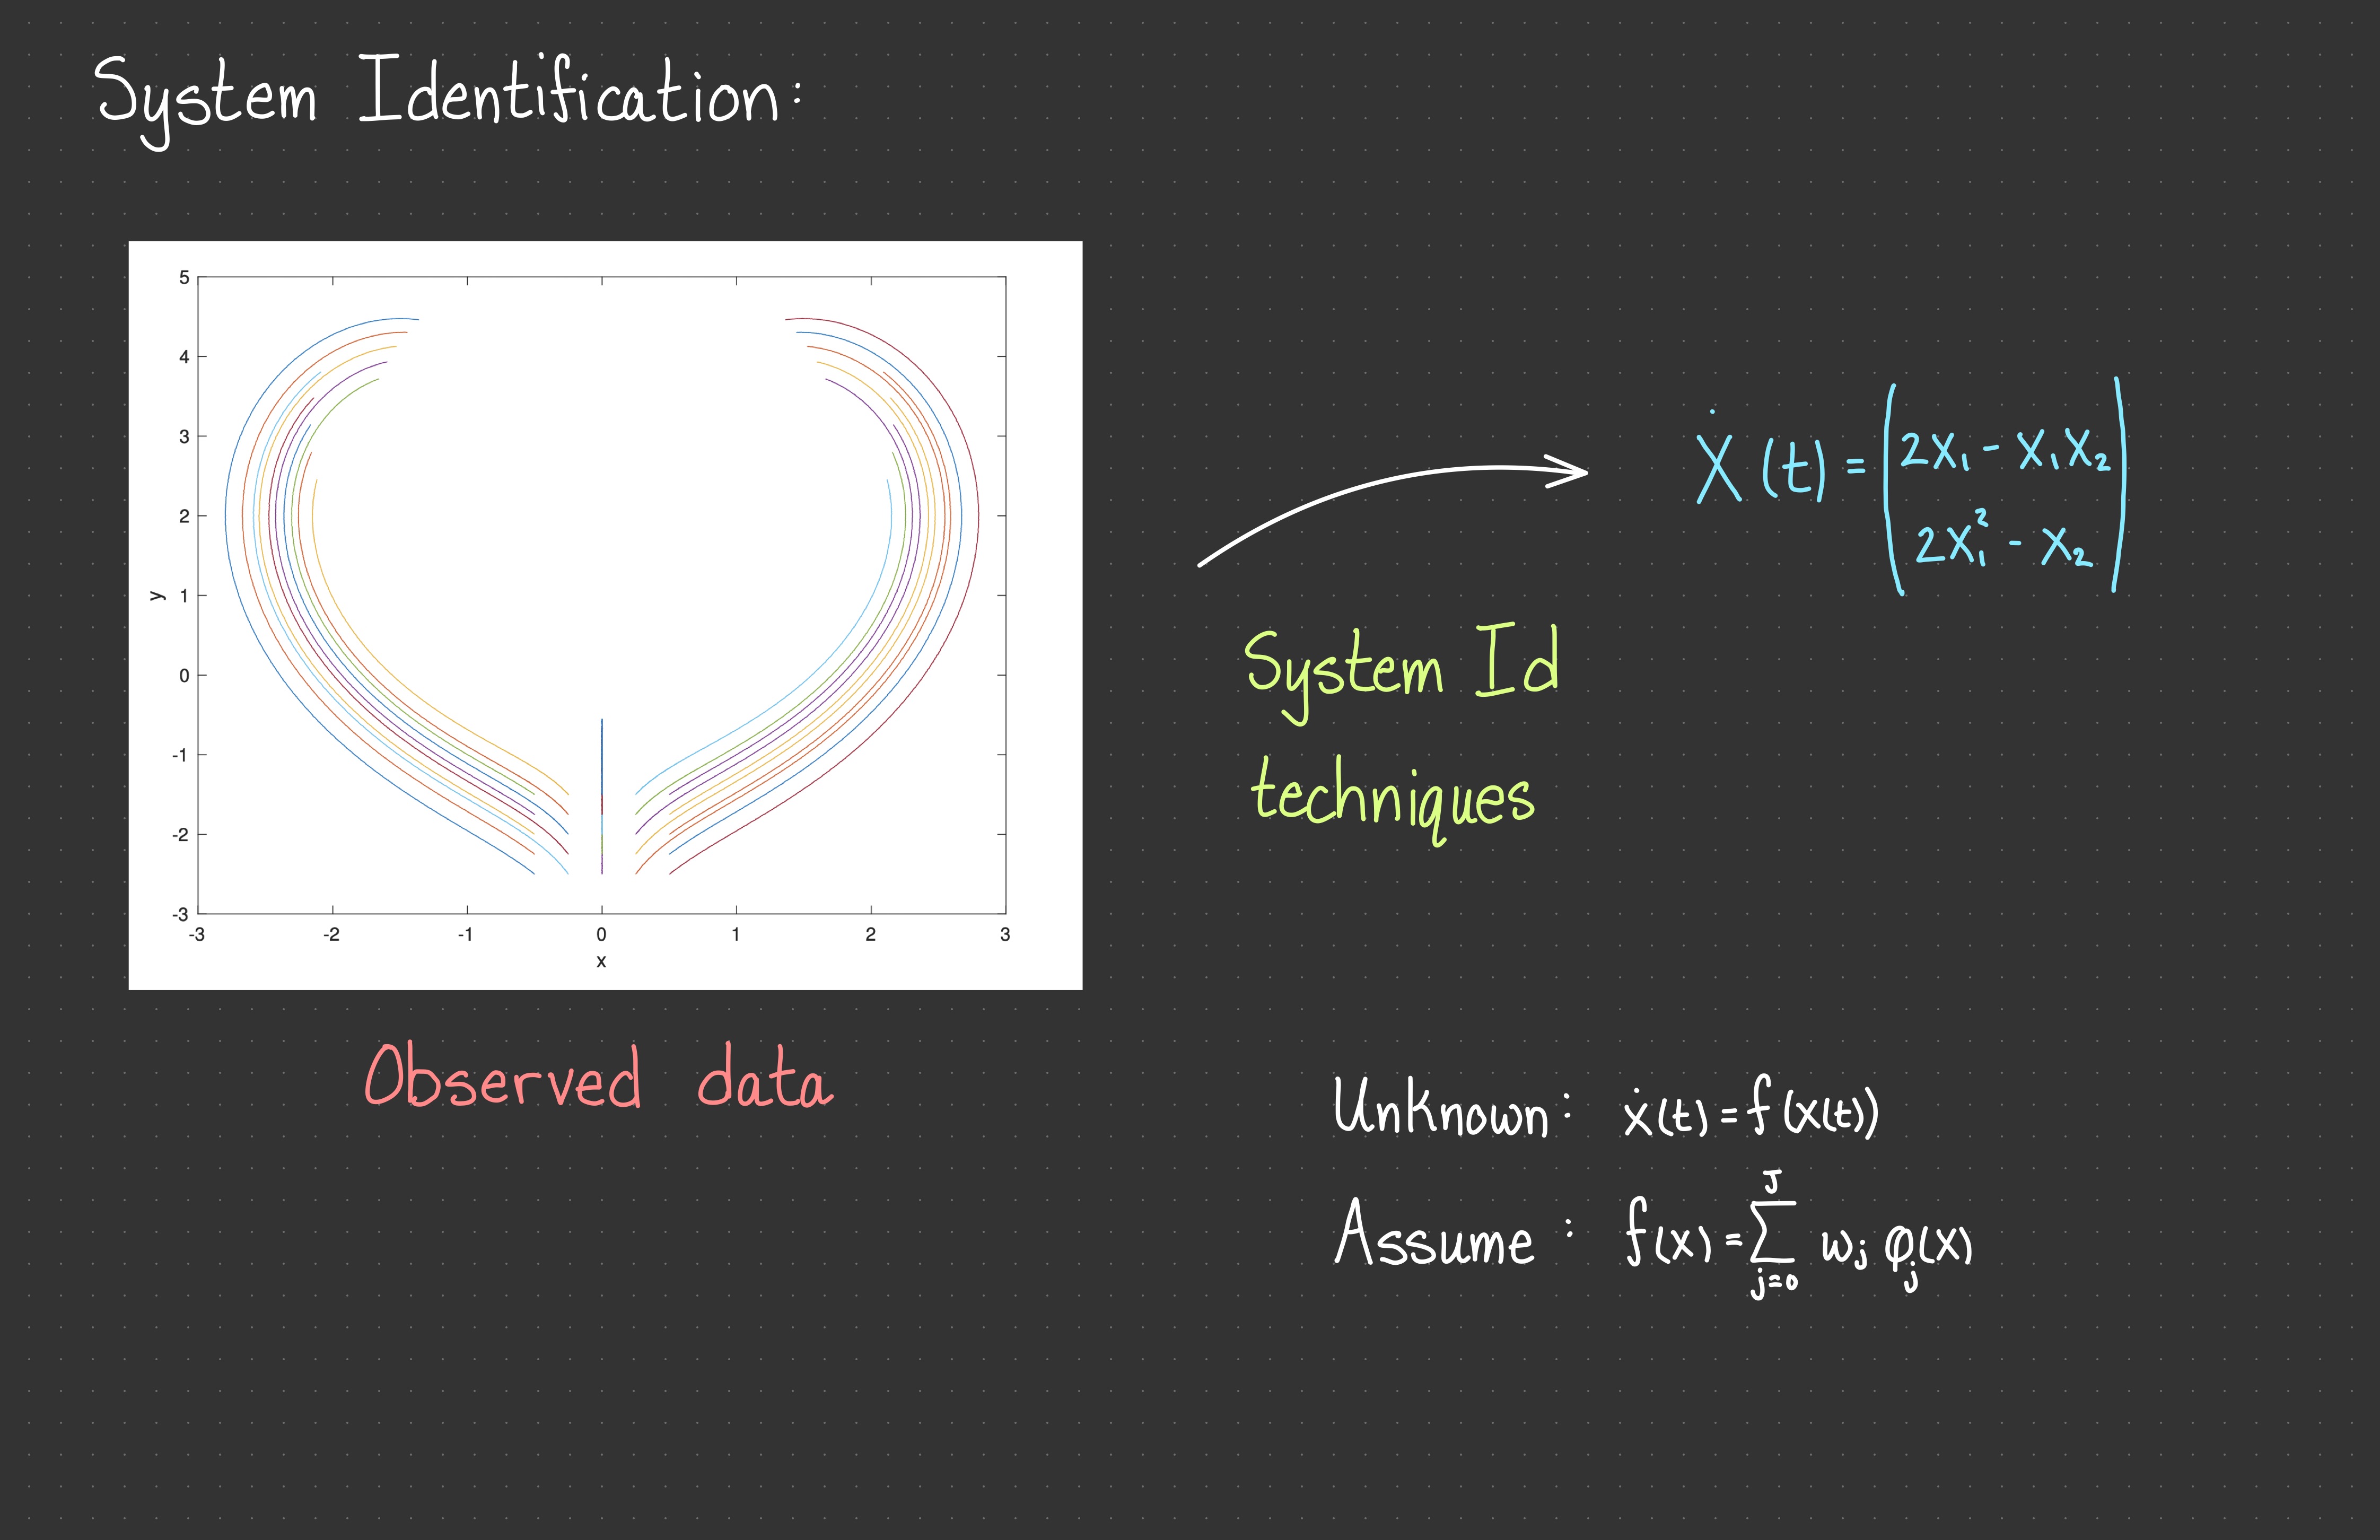 System Identification:
5
4
3
2
1
0
-1
-2
-3
y
-3 -2 -1 0 1 2 3
x
Observed data
System Id
techniques
Ẋ(t) = (2x₁ - x₁x₂
2x₁² - x₂)
Unknown: ẋ(t) = f(x(t))
Assume: f(x) = ∑_{j=0}^{J} w_j φ_j(x)